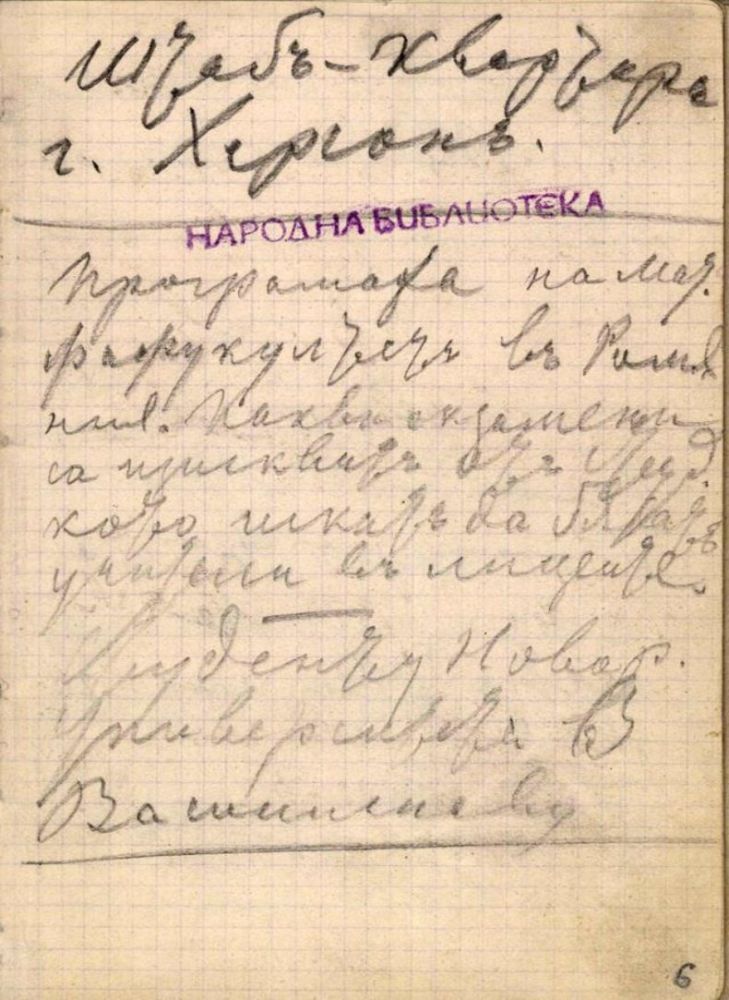 Щабъ-квартира
г. Херсонъ.
НАРОДНА БИБЛИОТЕКА
Програмата на мат.
факултетъ въ Ромѫ
ния. Какви екзамени
са изискватъ отъ студ.
които искатъ да бѫдатъ
учители въ лицеите.
Студенту Новор.
Университета В
Василиеву
6